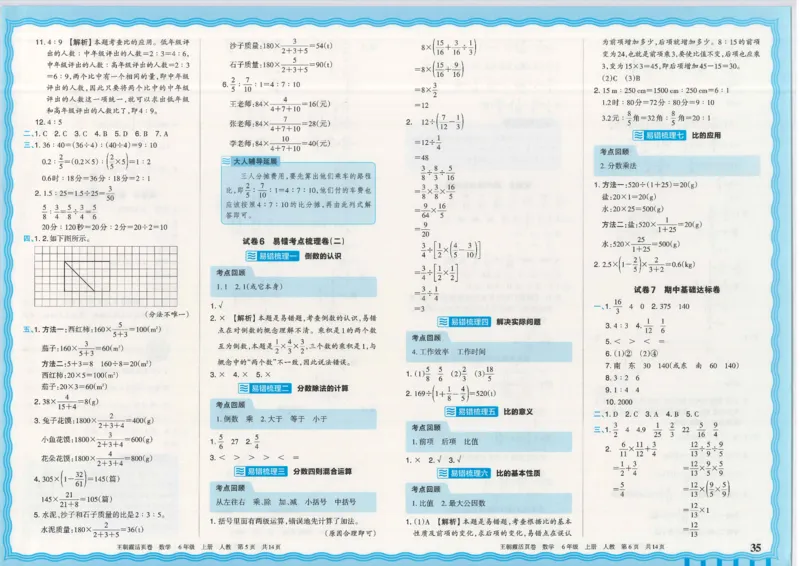 11. 4∶9 【解析】本题考查比的应用。低年级评
出的人数∶中年级评出的人数=2∶3=4∶6,
中年级评出的人数∶高年级评出的人数=2∶3
=6∶9,两个比中有一个相同的量,即中年级
评出的人数,因此只要将两个比中的中年级
评出的人数这一项统一,就可以求出低年级
和高年级评出的人数比了,即4∶9。
12. 4∶5
二、1. C 2. C 3. C 4. B 5. D 6. B 7. A
三、1. 36∶40=(36÷4)∶(40÷4)=9∶10
0.2∶2/5=(0.2×5)∶(2/5×5)=1∶2
0.6时∶18分=36分∶18分=2∶1
2. 1.5∶25=1.5÷25=3/50
5/8∶3/4=5/8÷3/4=5/6
20分∶120秒=20分∶2分=20÷2=10
四、1. 2. 如下图所示。
(分法不唯一)
五、1. 方法一:西红柿:160×5/(5+3)=100(m²)
茄子:160×3/(5+3)=60(m²)
方法二:5+3=8 160÷8=20(m²)
西红柿:20×5=100(m²)
茄子:20×3=60(m²)
2. 38×4/(15+4)=8(g)
3. 兔子花馍:1800×2/(2+3+4)=400(g)
小鱼花馍:1800×3/(2+3+4)=600(g)
花朵花馍:1800×4/(2+3+4)=800(g)
4. 305×(1-32/61)=145(篇)
145×21/(21+8)=105(篇)
5. 水泥、沙子和石子质量的比是2∶3∶5。
水泥质量:180×2/(2+3+5)=36(t)
沙子质量:180×3/(2+3+5)=54(t)
石子质量:180×5/(2+3+5)=90(t)
6. 2/5∶7/10∶1=4∶7∶10
王老师:84×4/(4+7+10)=16(元)
张老师:84×7/(4+7+10)=28(元)
李老师:84×10/(4+7+10)=40(元)
大人辅导延展
三人分摊费用,要先算出他们乘车的路程
比,即2/5∶7/10∶1=4∶7∶10,他们付的车费也
应该按照4∶7∶10的比分摊,再由此列式解
答即可。
试卷6 易错考点梳理卷(二)
易错梳理一 倒数的认识
考点回顾
1. 1 2. 1(或它本身)
1. √
2. × 【解析】本题是易错题,考查倒数的认识,易错
点在对倒数的概念理解不清。乘积是1的两个数
互为倒数,本题是1/2×4/3×3/2,三个数的乘积是1,与
概念中的“两个数”不一致,因此说法错误。
3. × 4. × 5. ×
易错梳理二 分数除法的计算
考点回顾
1. 倒数 乘 2. 大于 等于 小于
1. 5/6 27 2. 5/4
3. < > > < = <
易错梳理三 分数四则混合运算
考点回顾
从左往右 乘、除 加、减 小括号 中括号
1. 括号里面有两级运算,错误地先计算了加法。
(原因合理即可)
8×(15/16+3/16÷1/3)
=8×(15/16+9/16)
=8×3/2
=12
2. 12÷(7/12-1/3)
=12÷1/4
=48
3/8÷8/3÷5/16
=3/8×3/8×16/5
=9/64×16/5
=9/20
3/4÷[1/2×(4/5-3/10)]
=3/4÷[1/2×1/2]
=3/4÷1/4
=3
易错梳理四 解决实际问题
考点回顾
4. 工作效率 工作时间
1. (1)5/8 5/6 (2)2/5 (3)18/5
2. 169÷(1+1/8-4/5)=520(t)
易错梳理五 比的意义
考点回顾
1. 前项 后项 比值
1. × 2. √ 3. √
易错梳理六 比的基本性质
考点回顾
1. 比值 2. 最大公因数
1. (1)A 【解析】本题是易错题,考查根据比的基本
性质及前项的变化,求后项的变化,易错点在误认
为前项增加多少,后项就增加多少。8∶15的前项
变为24,也就是前项乘3,要使比值不变,后项也应乘
3,变为15×3=45,即后项增加45-15=30。
(2)C (3)B
2. 15 m∶250 cm=1500 cm∶250 cm=6∶1
1.2时∶80分=72分∶80分=9∶10
3.2元∶8/5角=32角∶8/5角=20∶1
易错梳理七 比的应用
考点回顾
2. 分数乘法
1. 方法一:520÷(1+25)=20(g)
盐:20×1=20(g)
水:20×25=500(g)
方法二:盐:520×1/(1+25)=20(g)
水:520×25/(1+25)=500(g)
2. 2.5×(1-2/5)×2/(3+2)=0.6(kg)
试卷7 期中基础达标卷
一、1. 16/3 4 0 2. 375 140
3. 4∶3 4. 1/12 1/6
5. < > < =
6. (1)② (2)④
7. 南 东 30 140(或东 南 60 140)
8. 3∶2 6
9. 1∶4 4
10. 2000
二、1. D 2. C 3. A 4. B 5. C
三、1. 3/2 4 4.9 1/25 2/3 22 5/16 9/4
2. 6/11×11/12+3/4
=1/2+3/4
=5/4
12/13÷5/9÷9/5
=12/13×9/5×5/9
=12/13×(9/5×5/9)
=12/13×1
=12/13
王朝霞活页卷 数学 6年级 上册 人教 第5页 共14页
王朝霞活页卷 数学 6年级 上册 人教 第6页 共14页
35